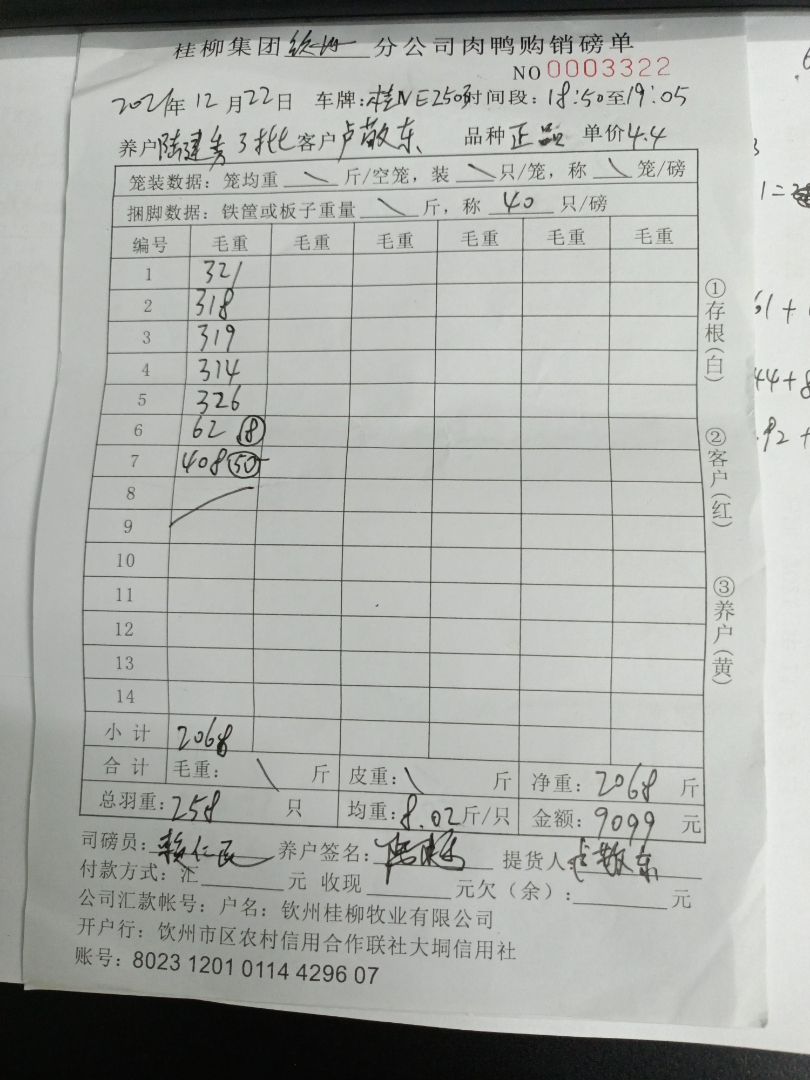 桂柳集团 钦州 分公司肉鸭购销磅单
NO 0003322
2021年 12月22日 车牌:桂NE250 时间段:18:50至19:05
养户 陆建 3批 客户 卢敬东 品种 正品 单价4.4
笼装数据:笼均重 \ 斤/空笼,装 \ 只/笼,称 \ 笼/磅
捆脚数据:铁筐或板子重量 \ 斤,称 40 只/磅
编号 毛重 毛重 毛重 毛重 毛重 毛重
1 321
2 318
3 319
4 314
5 326
6 62 ⑧
7 408 (50)
8
9
10
11
12
13
14
小计 2068
合计 毛重: \ 斤 皮重: \ 斤 净重:2068 斤
总羽重:258 只 均重:8.02斤/只 金额:9099 元
司磅员:赖仁民 养户签名: 提货人:卢敬东
付款方式:汇 元 收现 元欠(余): 元
公司汇款帐号:户名:钦州桂柳牧业有限公司
开户行:钦州市区农村信用合作联社大垌信用社
账号:8023 1201 0114 4296 07
①存根(白)
②客户(红)
③养户(黄)